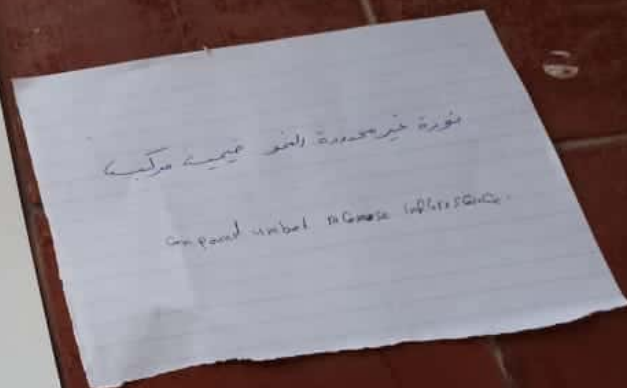 نورة غير محدودة النمو خيمية مركبة
Compound umbel racemose inflorescence.